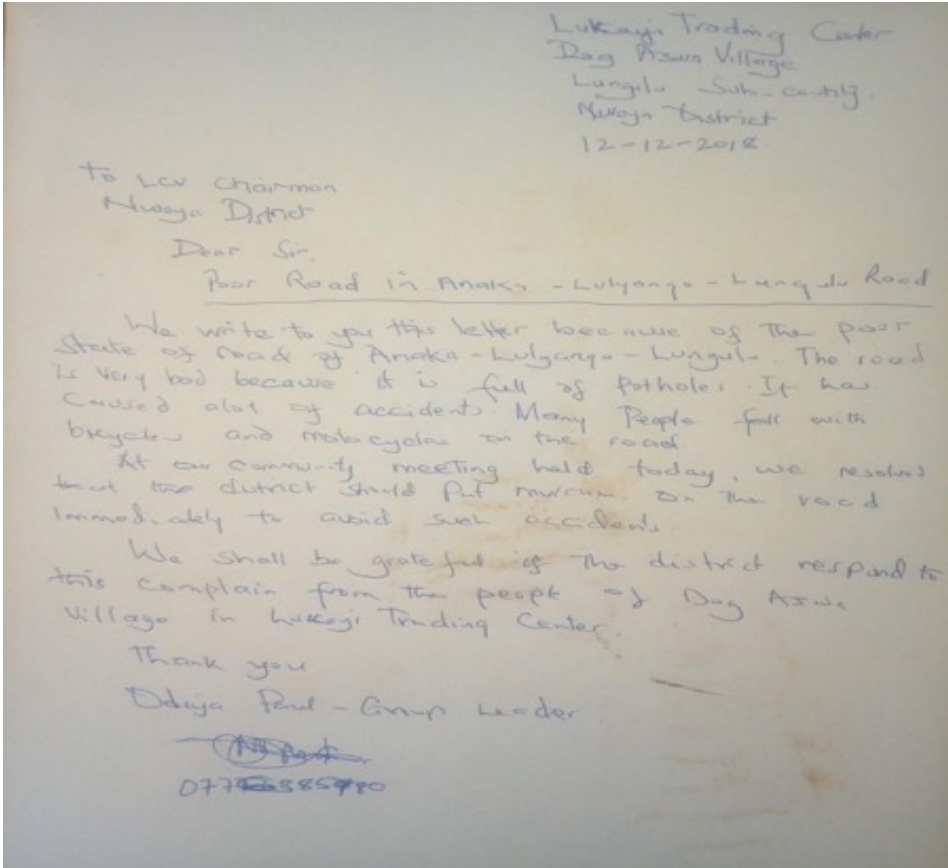 Lukayi Trading Center
Dog Aswa Village
Lungulu Sub-county
Nwoya District
12-12-2018
To LCV Chairman
Nwoya District
Dear Sir,
Poor Road in Anaka - Lulyango - Lungulu Road
We write to you this letter because of the poor
State of road of Anaka - Lulyango - Lungulu. The road
is very bad because it is full of potholes. It has
Caused alot of accidents. Many People fall with
bicycles and motocycles on the road
At our community meeting held today, we resolved
that the district should put murrum on the road
Immediately to avoid such accidents
We shall be grateful if the district respond to
this complain from the people of Dog Aswa
Village in Lukayi Trading Center.
Thank you
Paul - Group Leader